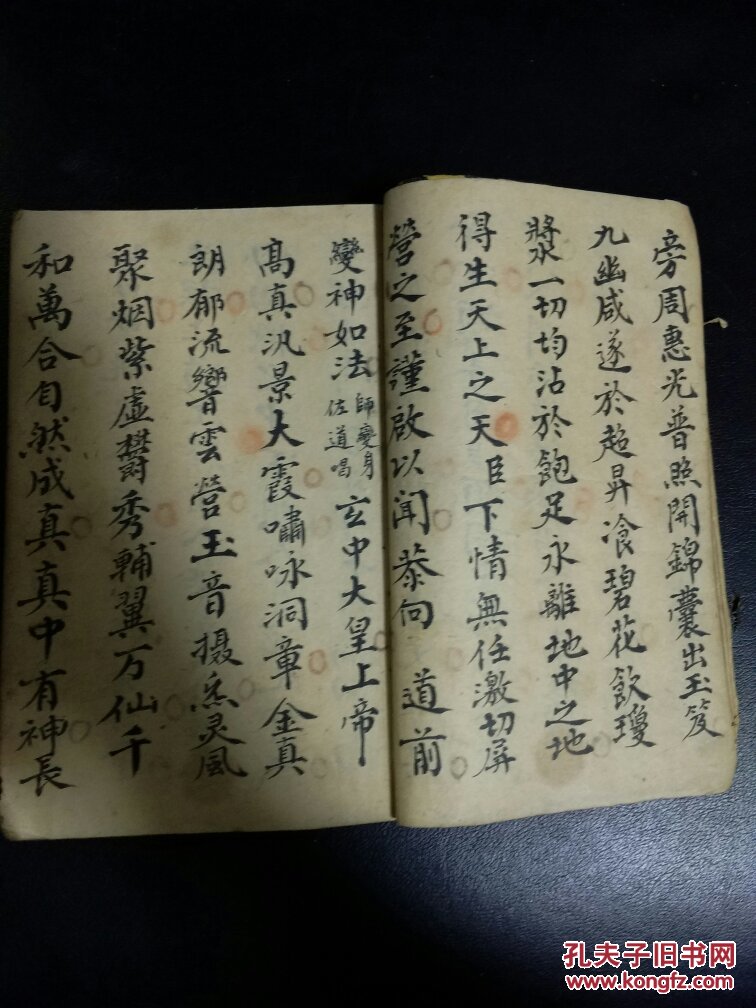 旁周惠光普照開錦囊出玉笈
九幽咸遂於超昇飡碧花飲瓊
漿一切均沾於飽足永離地中之地
得生天上之天臣下情無任激切屏
營之至謹啟以聞恭向 道前
變神如法 師變身 佐道唱 玄中大皇上帝
高真汎景大霞嘯咏洞章金真
朗郁流響雲營玉音摄炁灵風
聚烟紫虛欝秀輔翼万仙千
和萬合自然成真真中有神長
孔夫子旧书网
www.kongfz.com